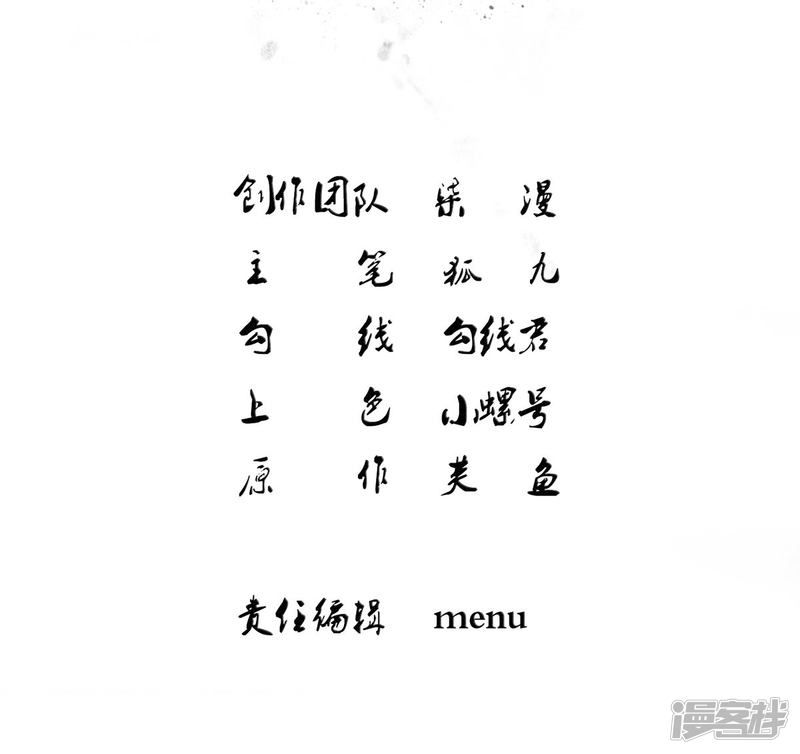 创作团队 柒 漫
主 笔 狐 九
勾 线 勾线君
上 色 小螺号
原 作 芙 鱼
责任编辑 menu
漫客栈